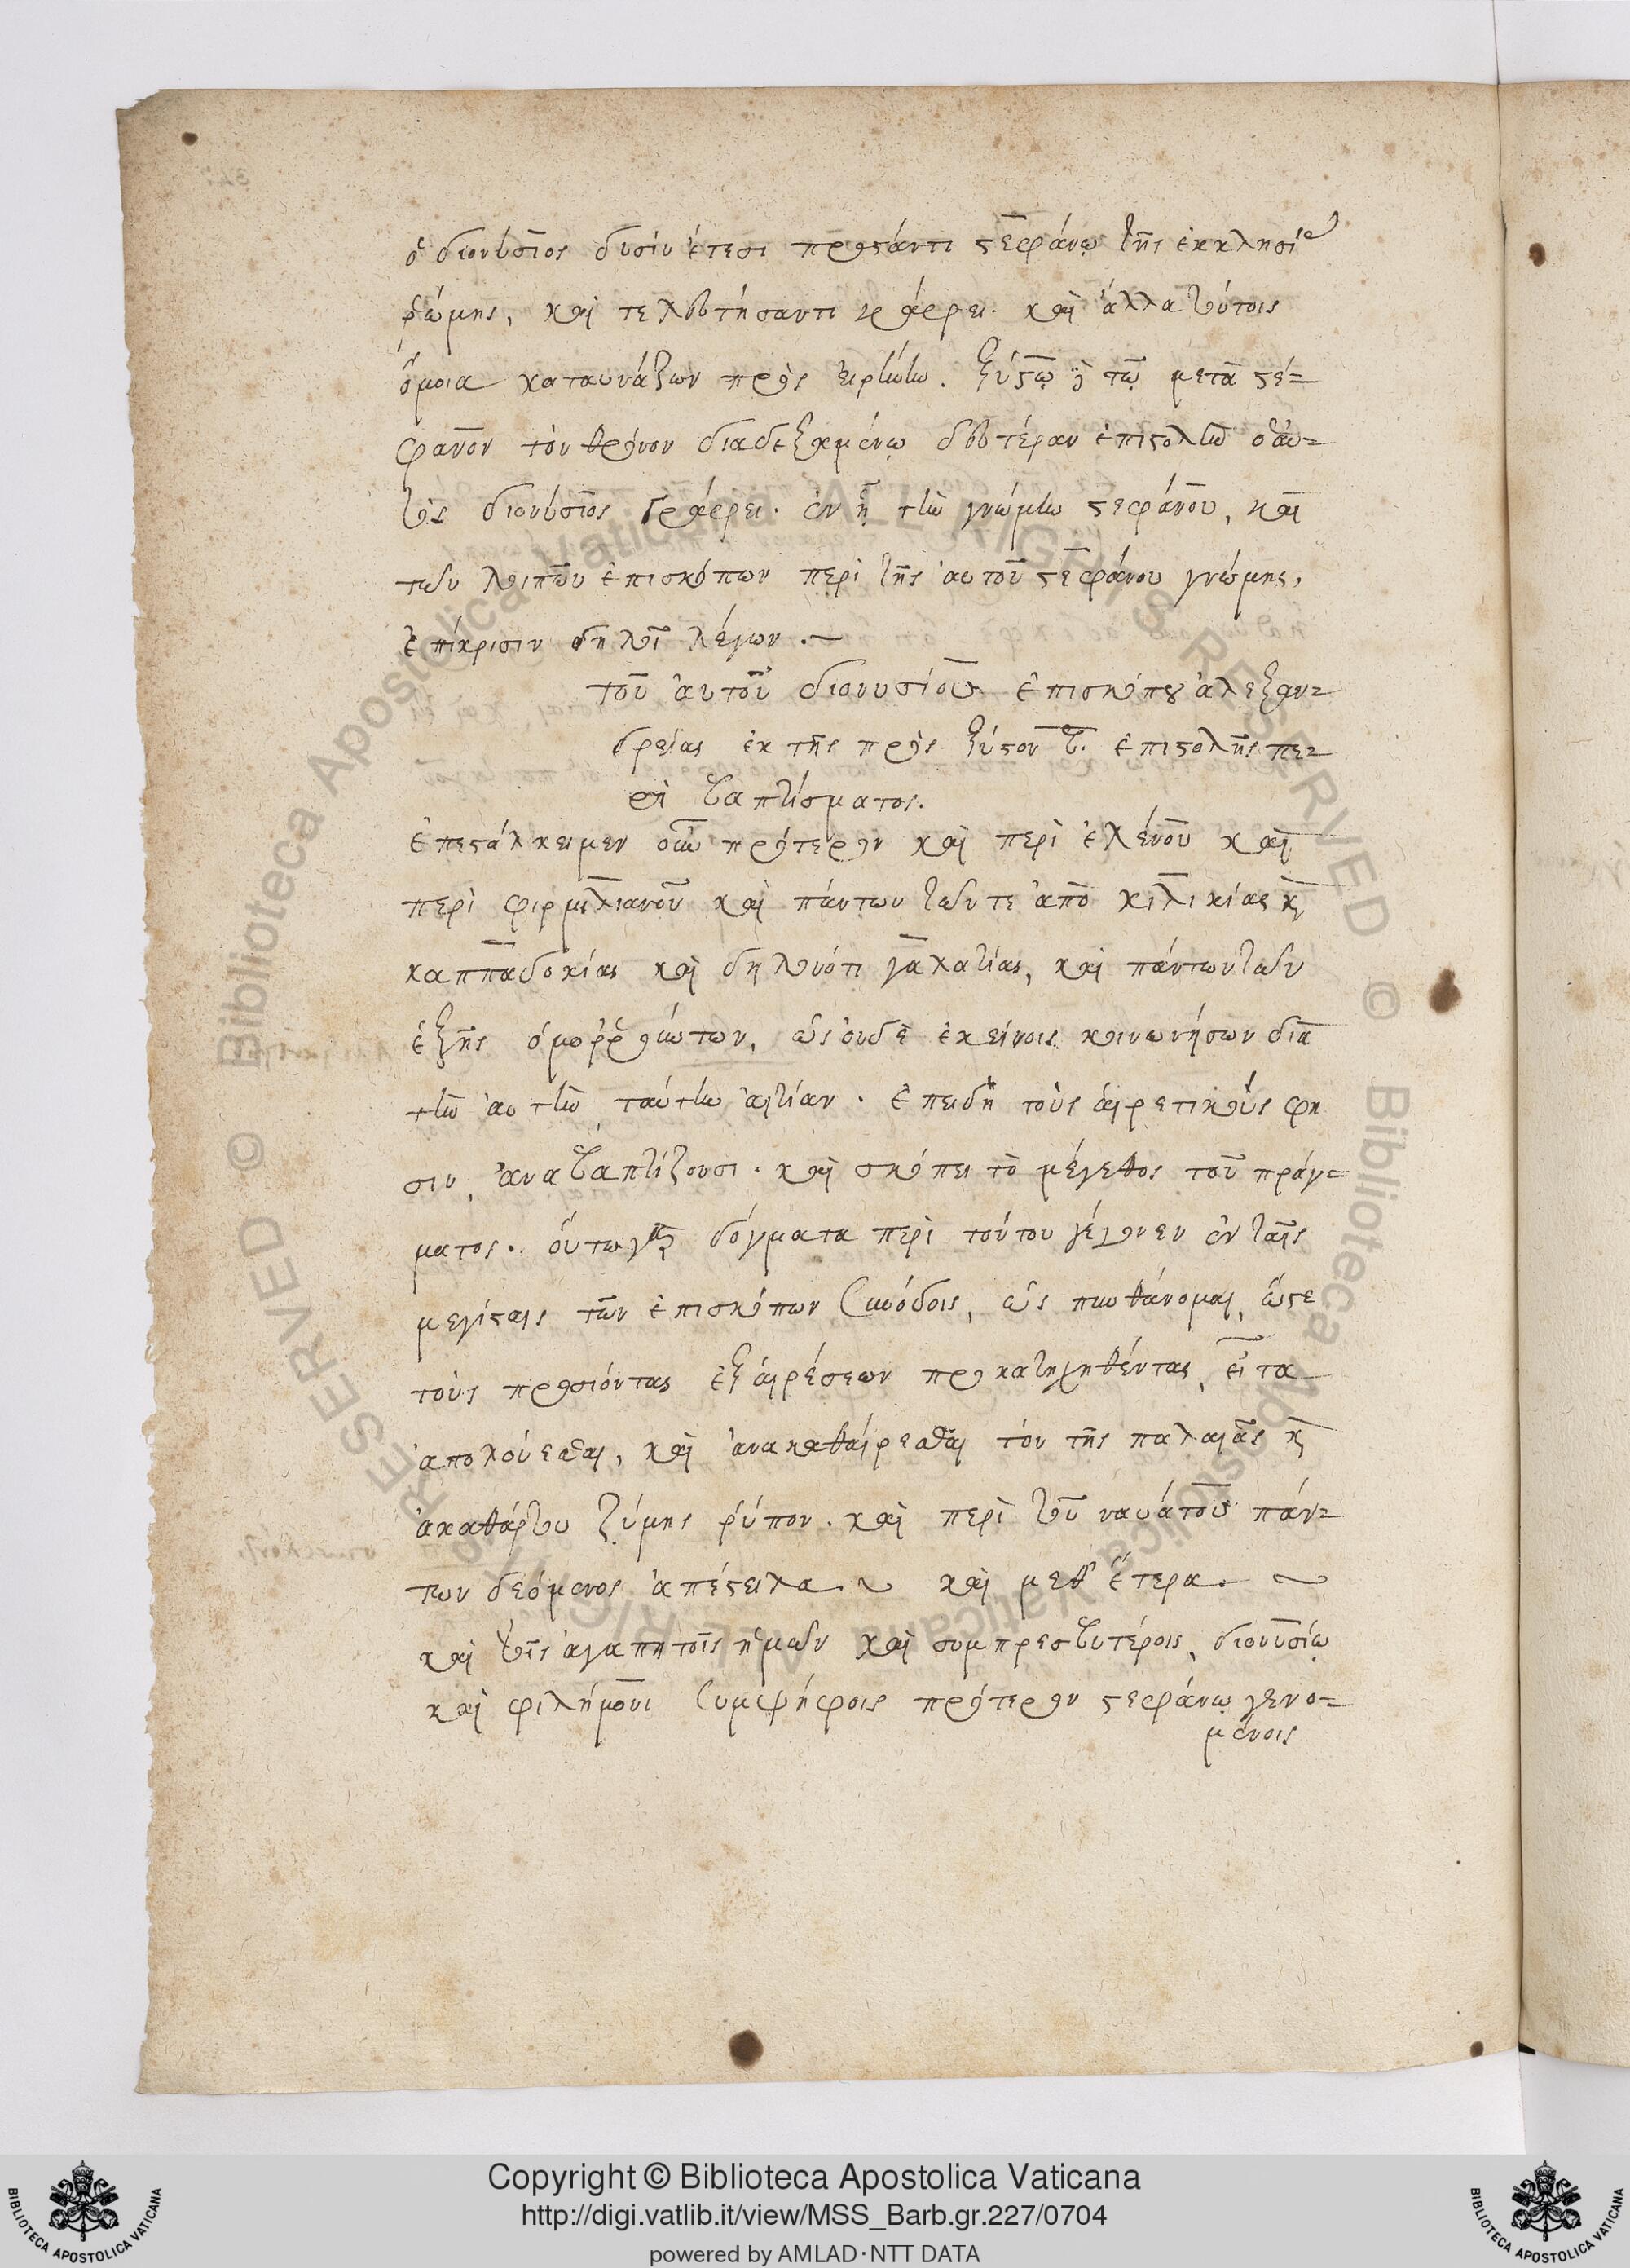 ὁ διονύσιος δυσὶν ἔτεσι προστάντι στεφάνῳ τῆς ἐκκλησίας
ῥώμης, καὶ τελευτήσαντι γράφει. καὶ ἄλλα τούτοις
ὅμοια καταυνάζων πρὸς εἰρήνην. ξύστῳ δὲ τῷ μετὰ στέ=
φανον τὸν θρόνον διαδεξαμένῳ δευτέραν ἐπιστολὴν ὁ αὐ=
τὸς διονύσιος γράφει. ἐν ᾗ τὴν γνώμην στεφάνου, καὶ
τῶν λοιπῶν ἐπισκόπων περὶ τῆς αὐτοῦ στεφάνου γνώμης,
ἐπίκρισιν δηλοῖ λέγων.—
τοῦ αὐτοῦ διονυσίου ἐπισκόπου ἀλεξαν=
δρείας ἐκ τῆς πρὸς ξύστον β. ἐπιστολῆς πε=
ρὶ βαπτίσματος.
ἐπεστάλκειμεν οὖν πρότερον καὶ περὶ ἑλένου καὶ
περὶ φιρμιλιανοῦ καὶ πάντων τῶν τε ἀπὸ κιλικίας καὶ
καππαδοκίας καὶ δηλονότι γαλατίας, καὶ πάντων τῶν
ἑξῆς ὁμορρούντων, ὡς οὐδὲ ἐκείνοις κοινωνήσων διὰ
τὴν αὐτὴν ταύτην αἰτίαν. ἐπειδὴ τοὺς αἱρετικούς φη
σιν, ἀναβαπτίζουσι. καὶ σκόπει τὸ μέγεθος τοῦ πράγ=
ματος. οὕτω γὰρ δόγματα περὶ τούτου γέγονεν ἐν ταῖς
μεγίσταις τῶν ἐπισκόπων συνόδοις, ὡς πυνθάνομαι, ὥστε
τοὺς προσιόντας ἐξ αἱρέσεων προκατηχηθέντας, εἶτα
ἀπολούεσθαι, καὶ ἀνακαθαίρεσθαι τὸν τῆς παλαιᾶς καὶ
ἀκαθάρτου ζύμης ῥύπον. καὶ περὶ τοῦ ναυάτου πάν=
των δεόμενος ἀπέστειλα. ~ καὶ μεθ' ἕτερα. ~
καὶ τοῖς ἀγαπητοῖς ἡμῶν καὶ συμπρεσβυτέροις, διονυσίῳ
καὶ φιλήμονι συμψήφοις πρότερον στεφάνῳ γενο=
μένοις
Copyright © Biblioteca Apostolica Vaticana
http://digi.vatlib.it/view/MSS_Barb.gr.227/0704
powered by AMLAD·NTT DATA